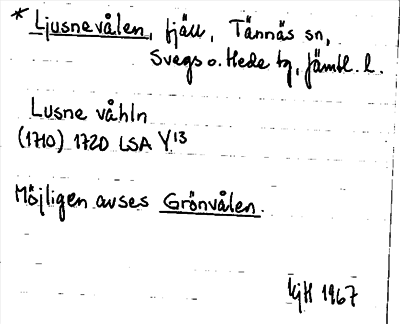 * Ljusnevålen, fjäll, Tännäs sn,
Svegs o. Hede tg, Jämtl. l.
Lusne våhln
(1710) 1720 LSA Y13
Möjligen avses Grönvålen.
1967